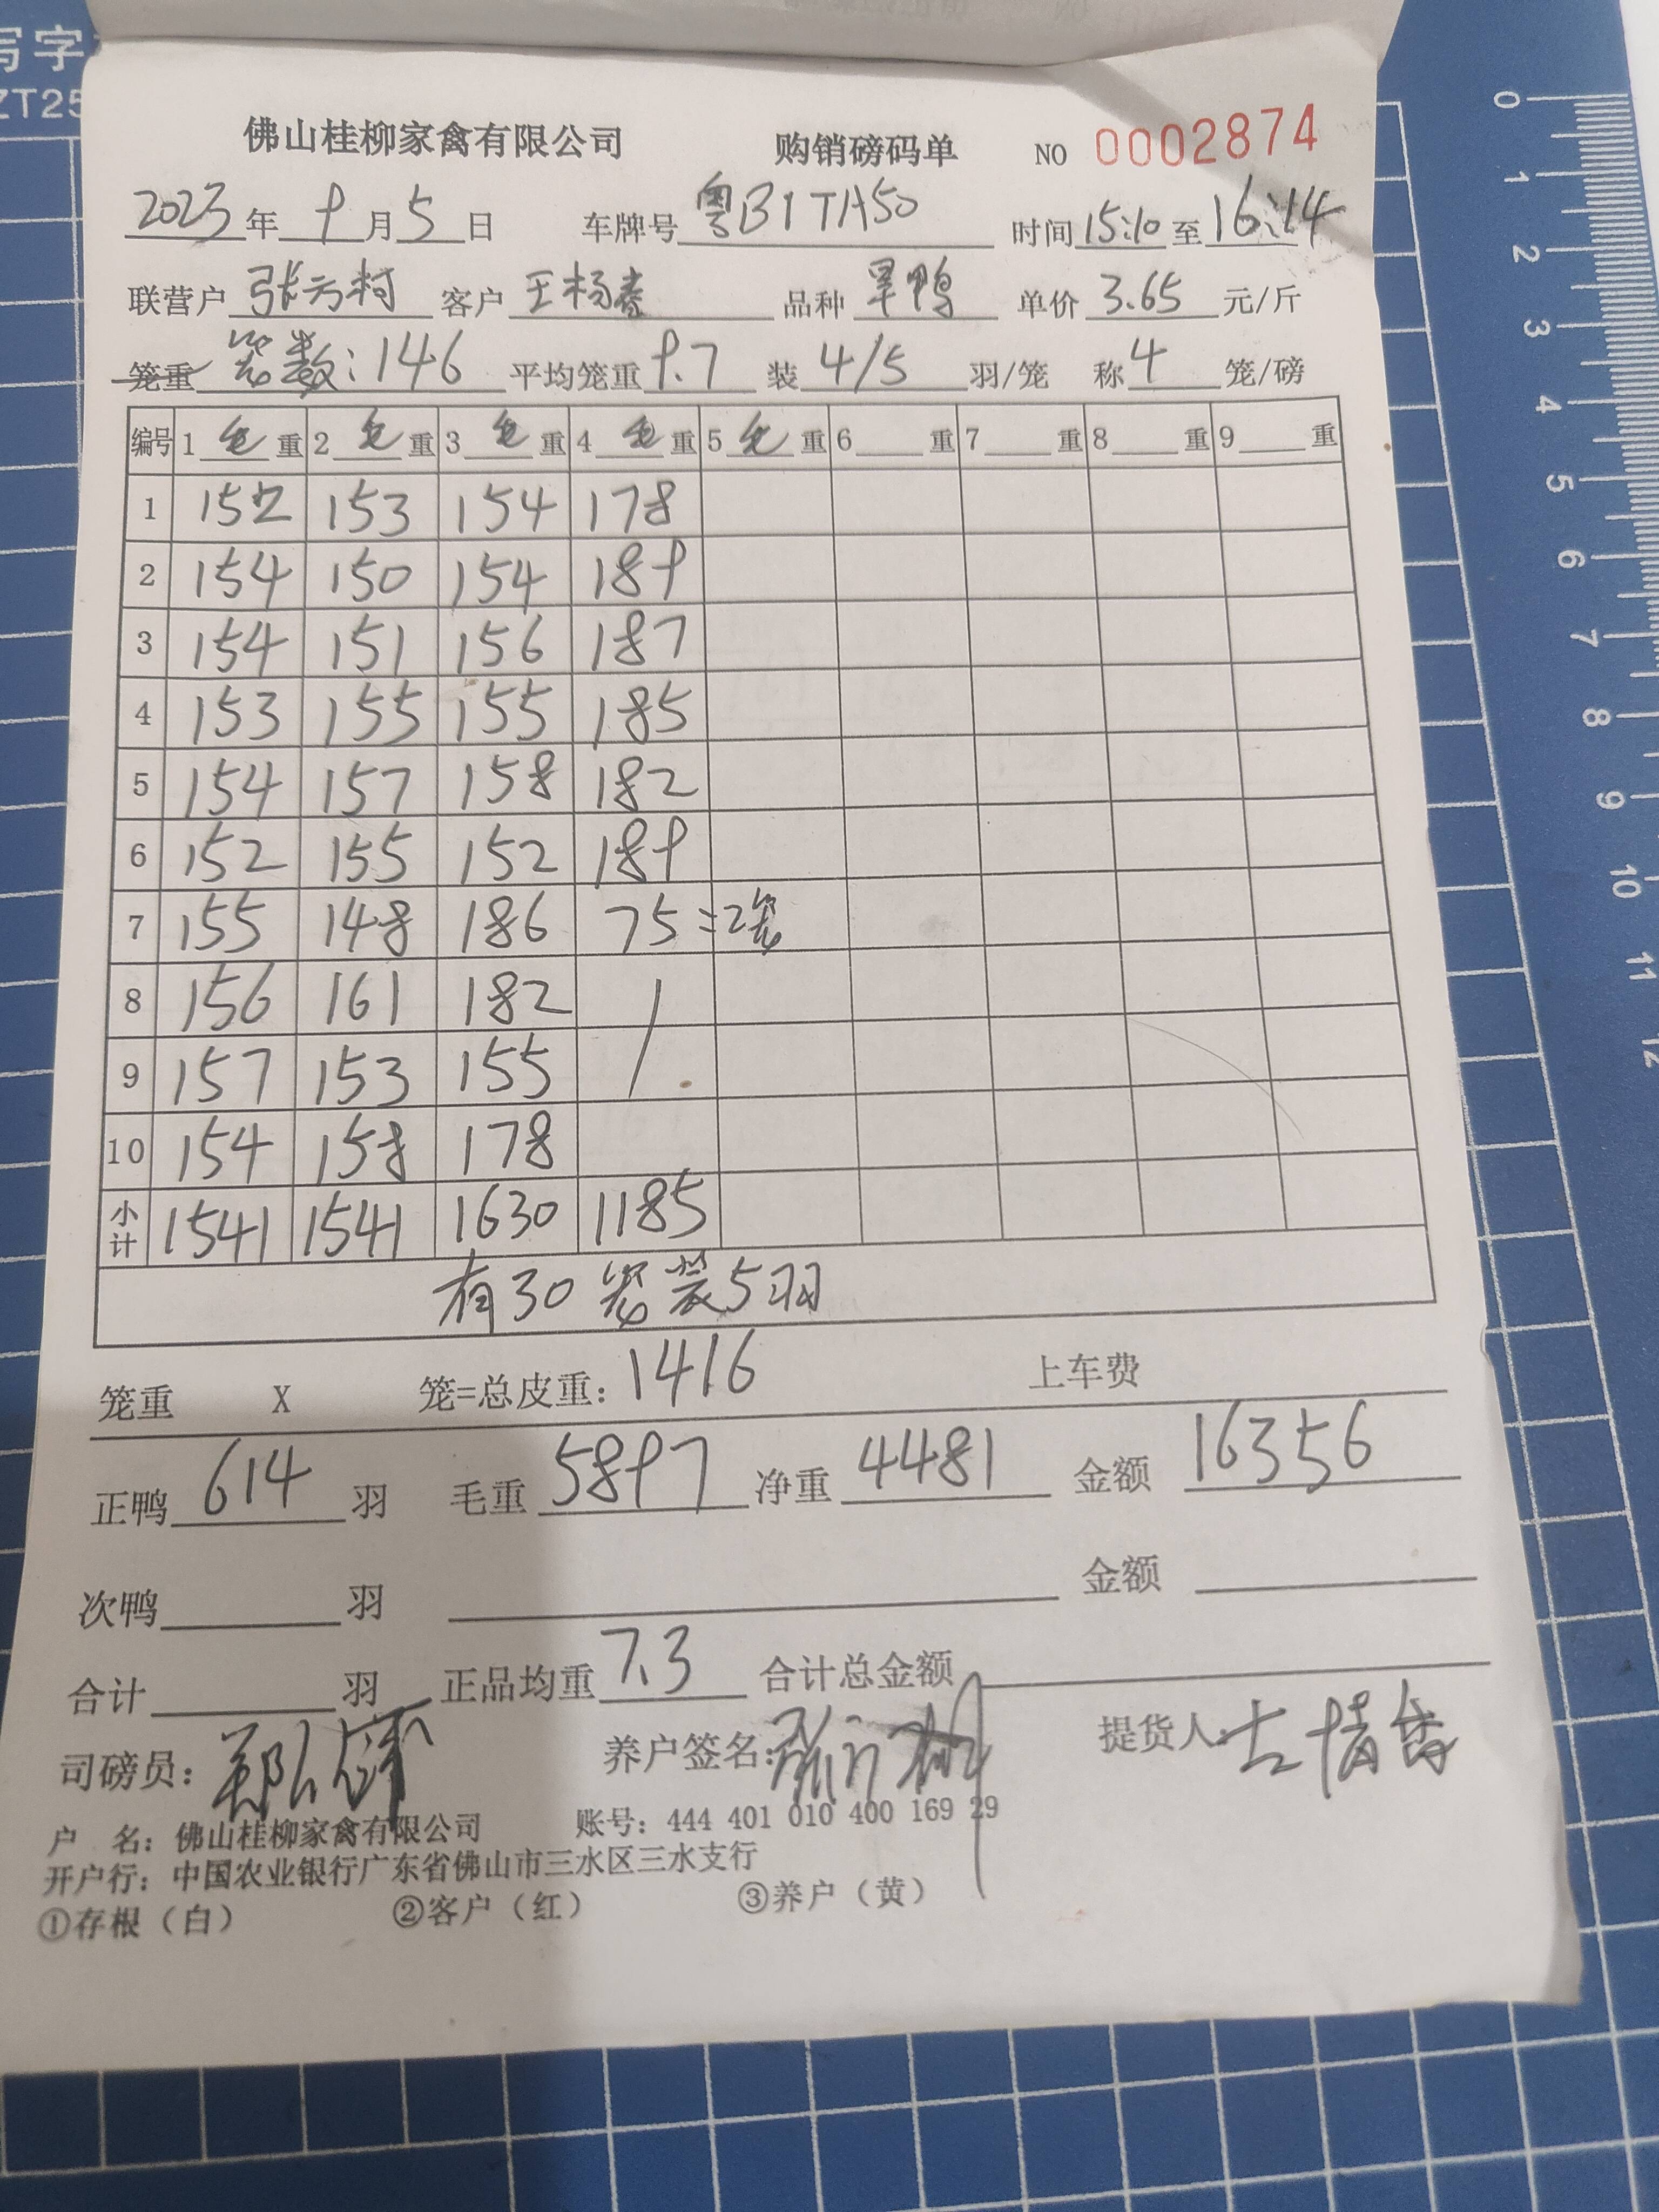 写字
ZT25
佛山桂柳家禽有限公司 购销磅码单 NO 0002874
2023年 9月5日 车牌号 粤B1TA50 时间15:10至16:14
联营户 张云柯 客户 王杨春 品种 旱鸭 单价 3.65 元/斤
笼重 笼数:146 平均笼重 9.7 装 4/5 羽/笼 称 4 笼/磅
编号 1 毛 重 2 毛 重 3 毛 重 4 毛 重 5 毛 重 6 重 7 重 8 重 9 重
1 152 153 154 178
2 154 150 154 189
3 154 151 156 187
4 153 155 155 185
5 154 157 158 182
6 152 155 152 189
7 155 148 186 75=2笼
8 156 161 182
9 157 153 155
10 154 158 178
小计 1541 1541 1630 1185
有30笼装5羽
笼重 X 笼=总皮重:1416 上车费
正鸭 614 羽 毛重 5897 净重 4481 金额 16356
次鸭 羽 金额
合计 羽 正品均重 7.3 合计总金额
司磅员: 养户签名: 提货人
户 名: 佛山桂柳家禽有限公司 账号: 444 401 010 400 169 29
开户行: 中国农业银行广东省佛山市三水区三水支行
①存根(白) ②客户(红) ③养户(黄)
0
1
2
3
4
5
6
7
8
9
10
11
12